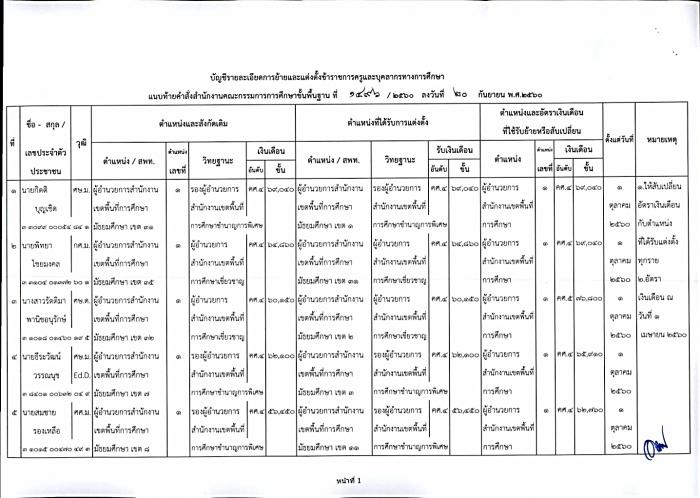 บัญชีรายละเอียดการย้ายและแต่งตั้งข้าราชการครูและบุคลากรทางการศึกษา
แนบท้ายคำสั่งสำนักงานคณะกรรมการการศึกษาขั้นพื้นฐาน ที่ ๑๔๙๖ / ๒๕๖๐ ลงวันที่ ๒๐ กันยายน พ.ศ.๒๕๖๐
ที่ ชื่อ - สกุล / เลขประจำตัว ประชาชน วุฒิ ตำแหน่งและสังกัดเดิม ตำแหน่งที่ได้รับการแต่งตั้ง ตำแหน่งและอัตราเงินเดือน ที่ใช้รับย้ายหรือสับเปลี่ยน ตั้งแต่วันที่ หมายเหตุ
ตำแหน่ง / สพท. ตำแหน่ง เลขที่ วิทยฐานะ เงินเดือน อันดับ ขั้น ตำแหน่ง / สพท. วิทยฐานะ รับเงินเดือน อันดับ ขั้น ตำแหน่ง ตำแหน่ง เลขที่ เงินเดือน อันดับ ขั้น
๑ นายกิตติ ศษ.ม. ผู้อำนวยการสำนักงาน ๑ รองผู้อำนวยการ คศ.๔ ๖๙,๐๔๐ ผู้อำนวยการสำนักงาน รองผู้อำนวยการ คศ.๔ ๖๙,๐๔๐ ผู้อำนวยการ ๑ คศ.๔ ๖๙,๐๔๐ ๑ ๑.ให้สับเปลี่ยน
บุญเชิด เขตพื้นที่การศึกษา สำนักงานเขตพื้นที่ เขตพื้นที่การศึกษา สำนักงานเขตพื้นที่ สำนักงานเขตพื้นที่ ตุลาคม อัตราเงินเดือน
มัธยมศึกษา เขต ๓๑ การศึกษาชำนาญการพิเศษ มัธยมศึกษา เขต ๑ การศึกษาชำนาญการพิเศษ การศึกษา ๒๕๖๐ กับตำแหน่ง
๒ นายพิทยา กศ.ม. ผู้อำนวยการสำนักงาน ๑ ผู้อำนวยการ คศ.๔ ๖๔,๘๖๐ ผู้อำนวยการสำนักงาน ผู้อำนวยการ คศ.๔ ๖๔,๘๖๐ ผู้อำนวยการ ๑ คศ.๔ ๖๙,๐๔๐ ๑ ที่ได้รับแต่งตั้ง
ไชยมงคล เขตพื้นที่การศึกษา สำนักงานเขตพื้นที่ เขตพื้นที่การศึกษา สำนักงานเขตพื้นที่ สำนักงานเขตพื้นที่ ตุลาคม ทุกราย
มัธยมศึกษา เขต ๓๕ การศึกษาเชี่ยวชาญ มัธยมศึกษา เขต ๓๑ การศึกษาเชี่ยวชาญ การศึกษา ๒๕๖๐ ๒.อัตรา
๓ นางสาวรัตติมา ศษ.ด. ผู้อำนวยการสำนักงาน ๑ ผู้อำนวยการ คศ.๔ ๖๐,๑๕๐ ผู้อำนวยการสำนักงาน ผู้อำนวยการ คศ.๔ ๖๐,๑๕๐ ผู้อำนวยการ ๑ คศ.๕ ๗๖,๘๐๐ ๑ เงินเดือน ณ
พานิชอนุรักษ์ เขตพื้นที่การศึกษา สำนักงานเขตพื้นที่ เขตพื้นที่การศึกษา สำนักงานเขตพื้นที่ สำนักงานเขตพื้นที่ ตุลาคม วันที่ ๑
มัธยมศึกษา เขต ๓๒ การศึกษาเชี่ยวชาญ มัธยมศึกษา เขต ๒ การศึกษาเชี่ยวชาญ การศึกษา ๒๕๖๐ เมษายน ๒๕๖๐
๔ นายธีระวัฒน์ ศษ.ม. ผู้อำนวยการสำนักงาน ๑ รองผู้อำนวยการ คศ.๔ ๖๒,๑๐๐ ผู้อำนวยการสำนักงาน รองผู้อำนวยการ คศ.๔ ๖๒,๑๐๐ ผู้อำนวยการ ๑ คศ.๔ ๖๕,๙๑๐ ๑
วรรณนุช Ed.D. เขตพื้นที่การศึกษา สำนักงานเขตพื้นที่ เขตพื้นที่การศึกษา สำนักงานเขตพื้นที่ สำนักงานเขตพื้นที่ ตุลาคม
มัธยมศึกษา เขต ๗ การศึกษาชำนาญการพิเศษ มัธยมศึกษา เขต ๓ การศึกษาชำนาญการพิเศษ การศึกษา ๒๕๖๐
๕ นายสมชาย ศศ.ม. ผู้อำนวยการสำนักงาน ๑ รองผู้อำนวยการ คศ.๔ ๕๖,๔๕๐ ผู้อำนวยการสำนักงาน รองผู้อำนวยการ คศ.๔ ๕๖,๔๕๐ ผู้อำนวยการ ๑ คศ.๔ ๖๒,๗๖๐ ๑
รองเหลือ เขตพื้นที่การศึกษา สำนักงานเขตพื้นที่ เขตพื้นที่การศึกษา สำนักงานเขตพื้นที่ สำนักงานเขตพื้นที่ ตุลาคม
มัธยมศึกษา เขต ๘ การศึกษาชำนาญการพิเศษ มัธยมศึกษา เขต ๑๑ การศึกษาชำนาญการพิเศษ การศึกษา ๒๕๖๐
หน้าที่ 1